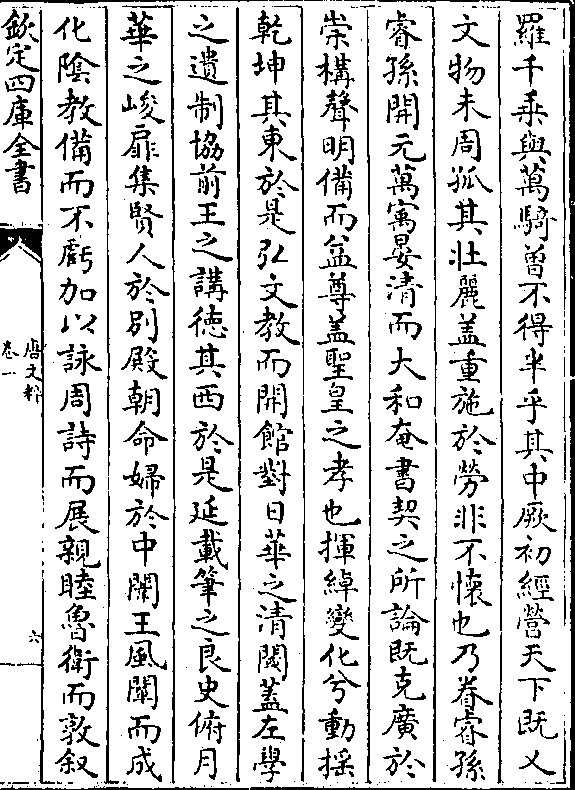 羅千乗與萬騎曽不得半乎其中厥初經營天下既乂
文物未周孤其壯麗蓋重施於勞非不懷也乃眷睿孫
睿孫開元萬寓晏清而大和奄書契之所論既克廣於
崇構聲明備而益尊蓋聖皇之孝也揮綽變化兮動揺
乾坤其東於是弘文教而開館對日華之清閟蓋左學
之遺制協前王之講德其西於是延載筆之良史俯月
華之峻扉集賢人於別殿朝命婦於中闈王風闡而成
化陰教備而不虧加以詠周詩而展親睦魯衛而敦叙
欽定四庫全書
唐文粹
卷一
六